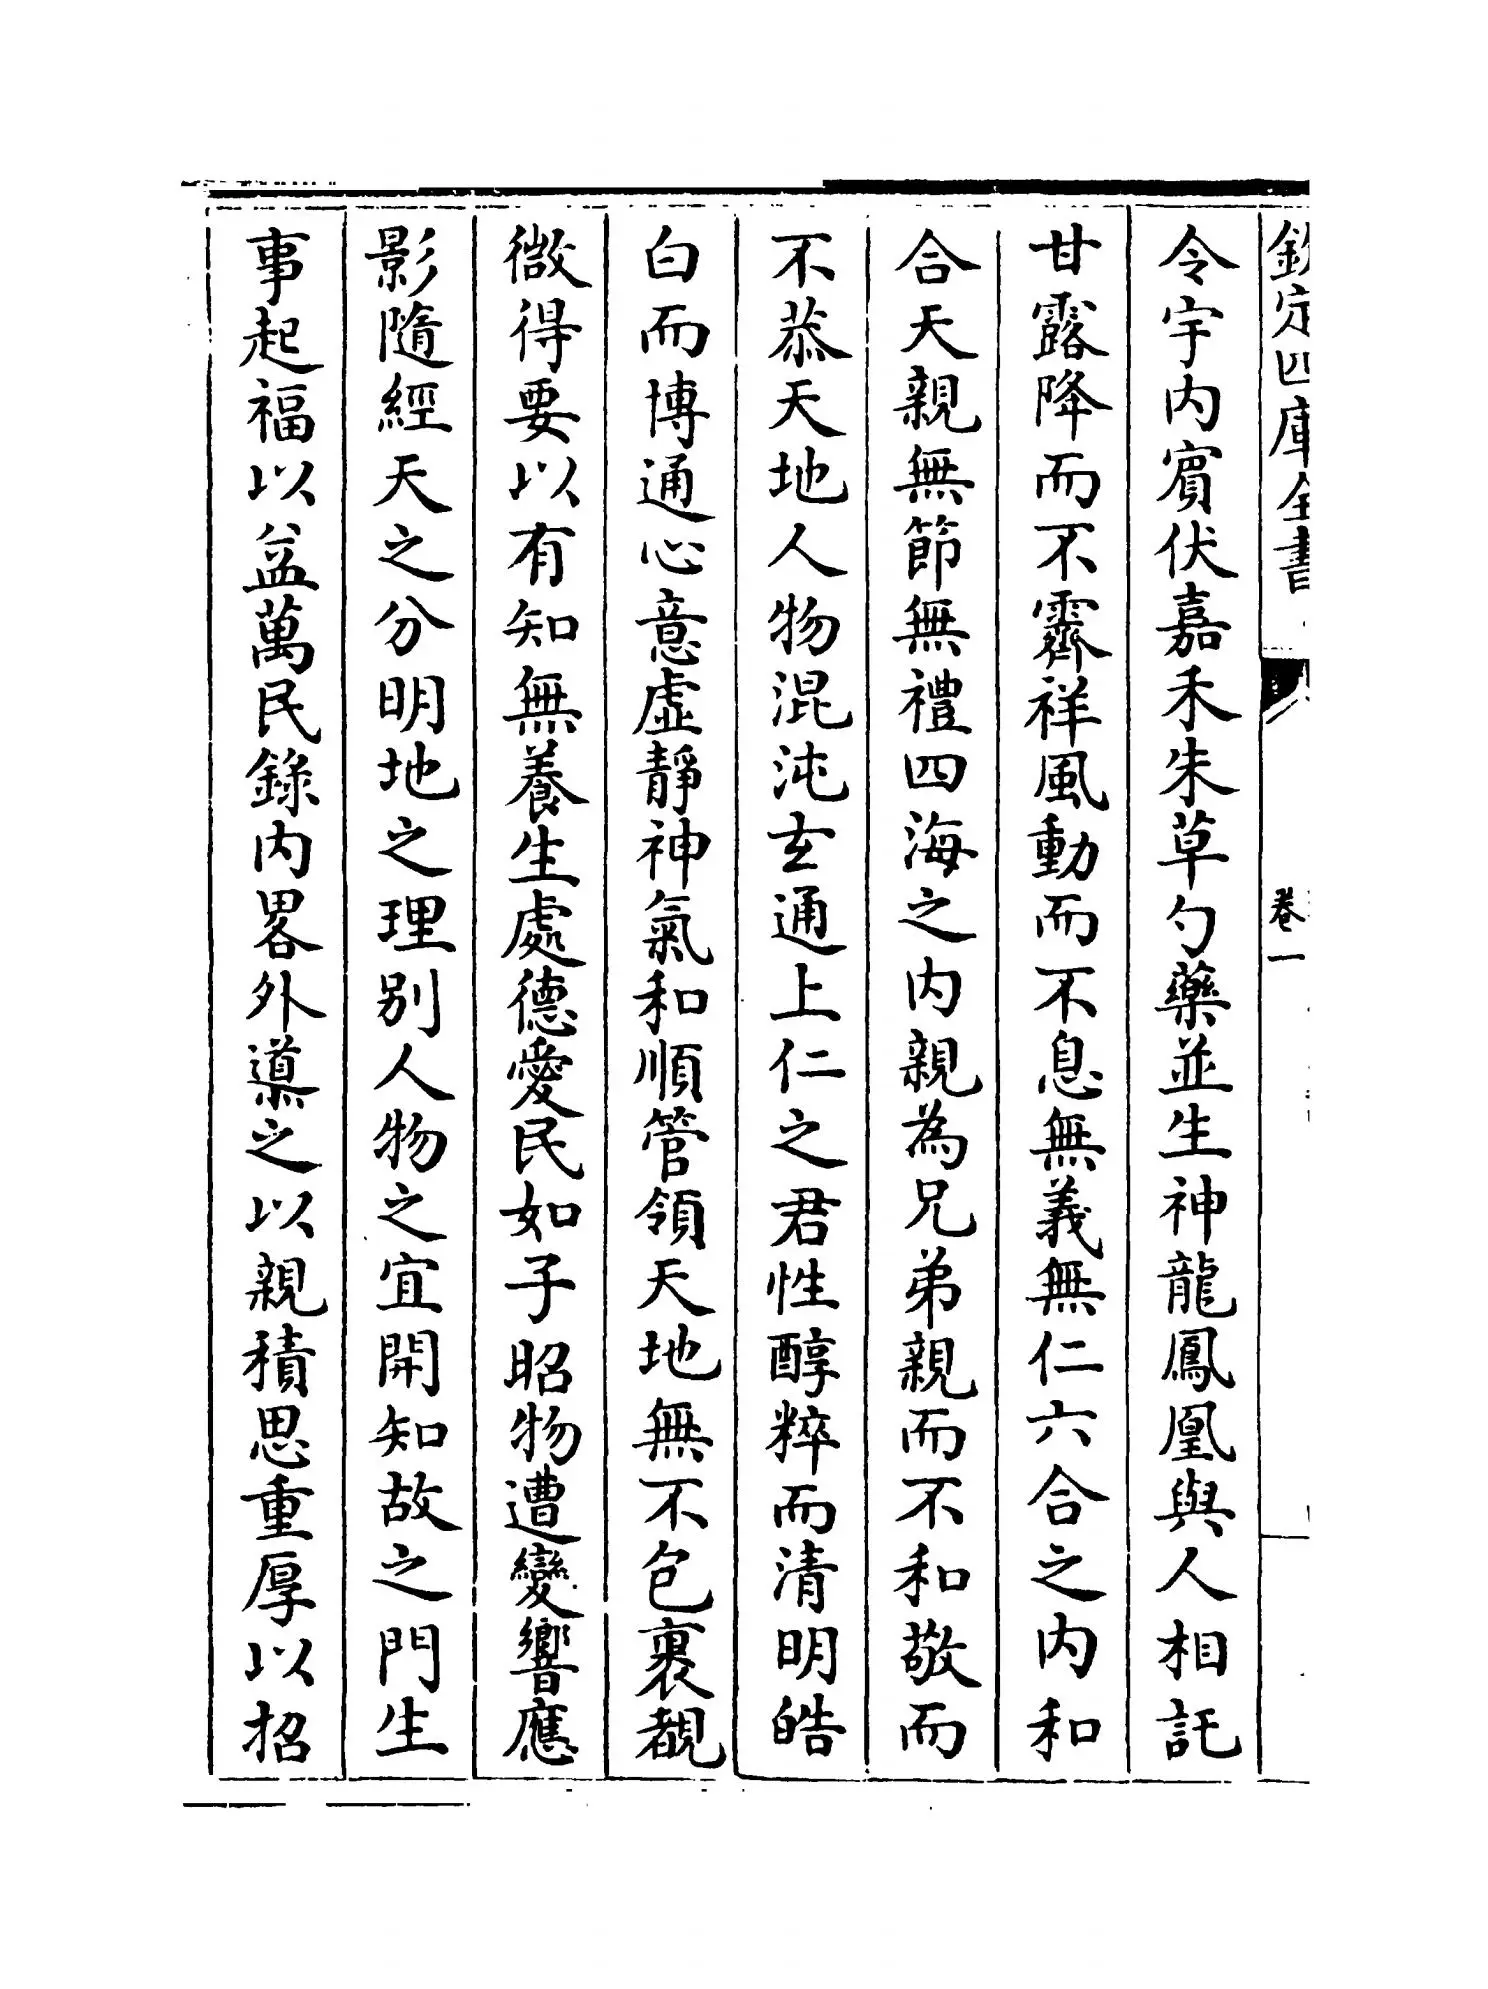 欽定四庫全書
卷一
令宇内賓伏嘉禾朱草勺藥並生神龍鳳凰與人相託
甘露降而不霽祥風動而不息無義無仁六合之内和
合天親無節無禮四海之内親為兄弟親而不和敬而
不恭天地人物混沌玄通上仁之君性醇粹而清明皓
白而博通心意虛靜神氣和順管領天地無不包裹覩
微得要以有知無養生處德愛民如子昭物遭變響應
影隨經天之分明地之理別人物之宜開知故之門生
事起福以益萬民錄内畧外導之以親積思重厚以招